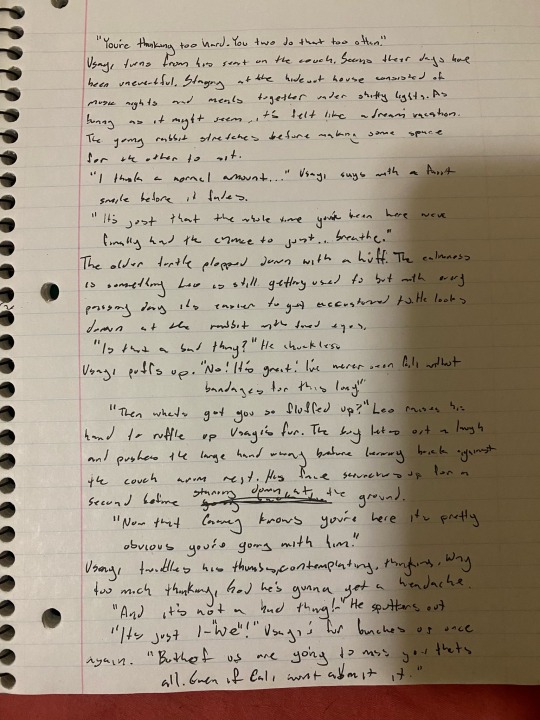 "You're thinking too hard. You two do that too often."
Usagi turns from his seat on the couch. Seems these days have
been uneventful. Staying at the hideout house consisted of
music nights and meals together under shitty lights. As
funny as it might seem, it's felt like a dream vacation.
The young rabbit stretches before making some space
for the other to sit.
"I think a normal amount..." Usagi says with a faint
smile before it fades.
"It's just that the whole time you've been here we've
finally had the chance to just... breathe."
The older turtle plopped down with a huff. The calmness
is something Leo is still getting used to but with every
passing day its easier to get accustomed to. He looks
down at the rabbit with tired eyes.
"Is that a bad thing?" He chuckles
Usagi puffs up. "No! It's great! I've never seen Cali without
bandages for this long"
"Then whats got you so fluffed up?" Leo raises his
hand to ruffle up Usagi's fur. The boy lets out a laugh
and pushes the large hand away before leaning back against
the couch arm rest. His face scrunches up for a
second before staring down at the ground.
"Now that Casey knows you're here it's pretty
obvious you're going with him."
Usagi twiddles his thumbs, contemplating, thinking. Way
too much thinking, God he's gonna get a headache.
"And it's not a bad thing!" He sputters out
"It's just I-"We"!" Usagi's fur bunches up once
again. "Both of us are going to miss you thats
all. Even if Cali wont admit it."